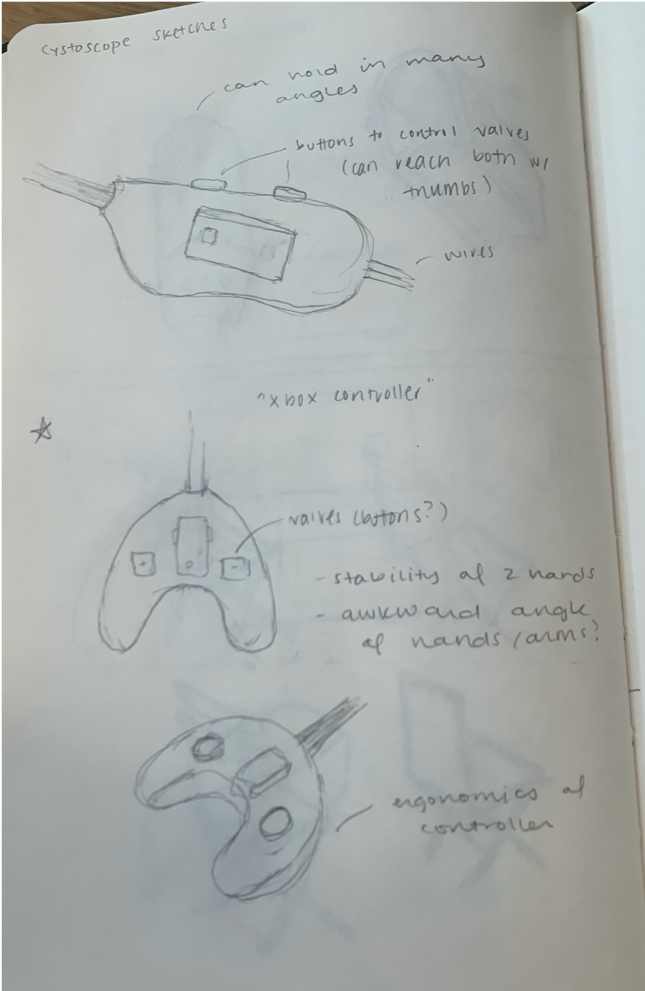 cystoscope sketches
can hold in many
angles
buttons to control valves
(can reach both w/
thumbs)
wires
"xbox controller"
valves (buttons?)
- stability of 2 hands
- awkward angle
of hands/arms?
ergonomics of
controller